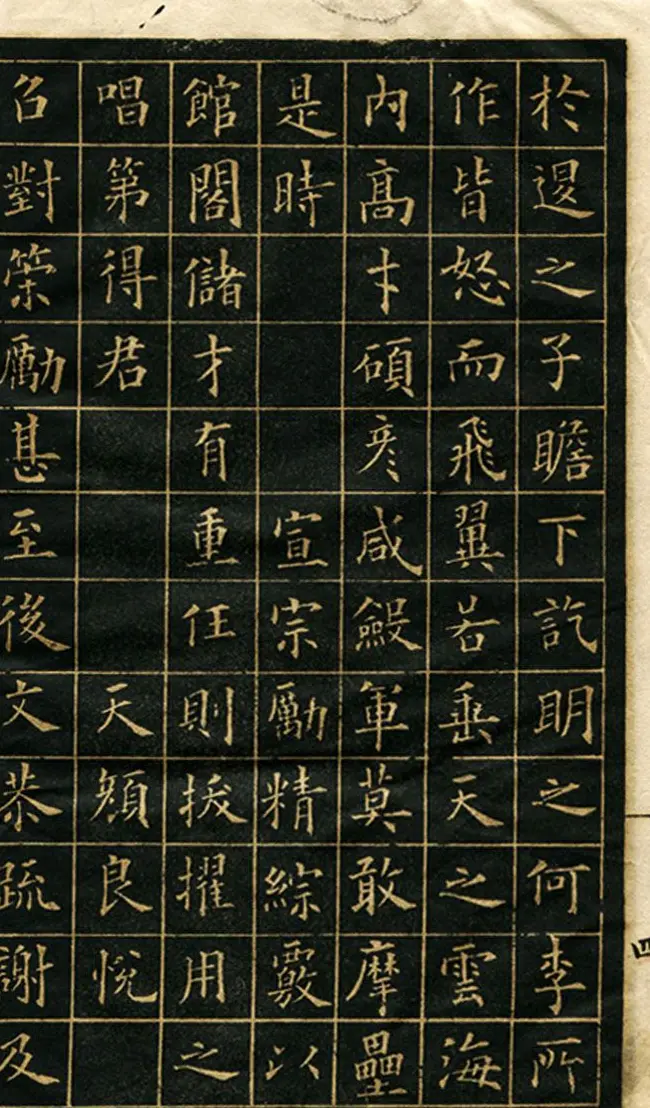 於退之子瞻下訖明之何李所
作皆怒而飛翼若垂天之雲海
内高才碩彦咸斂軍莫敢摩壘
是時宣宗勵精綜覈以
館閣儲才有重任則拔擢用之
唱第得君天顔良悦
召對策勵甚至後文恭疏謝及
四